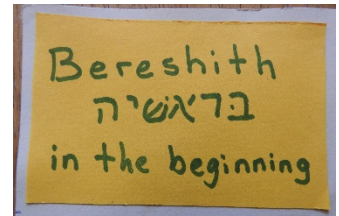 Bereshith
בראשיה
in the beginning